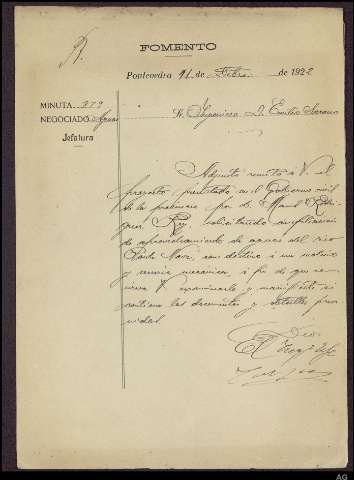 FOMENTO
Pontevedra 11 de Febro. de 1922
MINUTA
NEGOCIADO Aguas
Jefatura
Al Ingeniero D. Emilio Serrano
Adjunto remito á V. el
proyecto presentado en el Gobierno civil
de la provincia por D. Manuel Rodri-
guez Rey, solicitando ampliacion
de aprovechamiento de aguas del rio
con destino á un molino
y sierra mecánica, á fin de que se
sirva V. examinarlo y manifieste si
contiene los documentos y detalles preve-
nidos.
Dios
El Ingo. Jefe